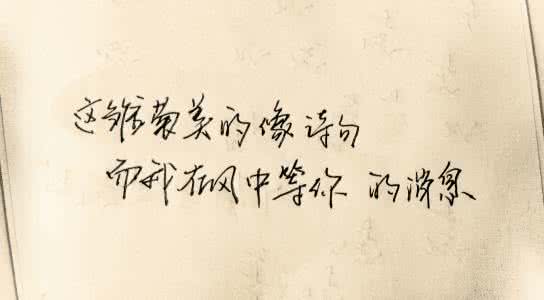 这雏菊美的像诗句
而我在风中等你 的消息